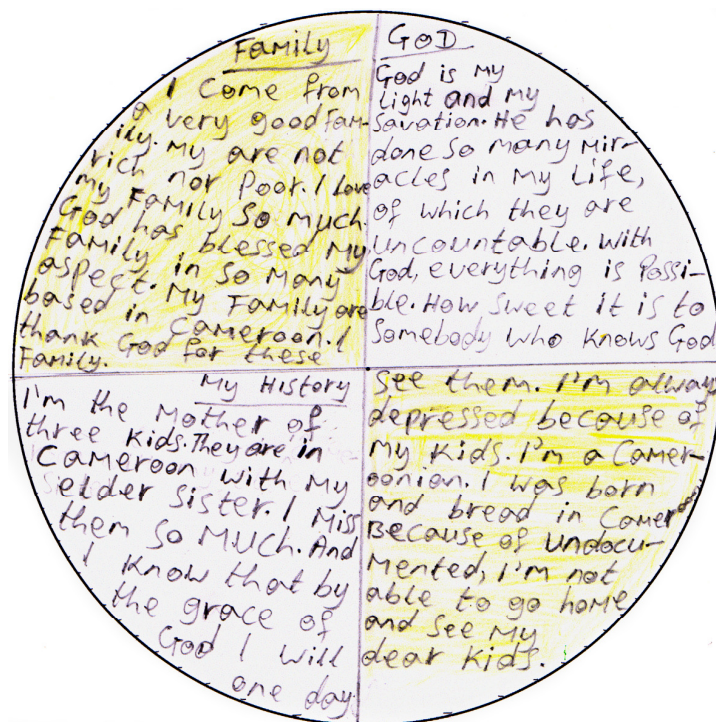 Family
I come from
a very good Fam-
ily. My are not
rich nor Poor. I love
my Family so much.
God has blessed My
Family in so many
aspect. My Family are
based in Cameroon. I
thank God for these
Family.
GOD
God is My
Light and my
Savation. He has
done so many Mir-
acles in My Life,
of which they are
uncountable. With
God, everything is Possi-
ble. How sweet it is to
Somebody who knows God
My History
I'm the Mother of
three kids. They are in
Cameroon with My
elder sister. I Miss
them so Much. And
I know that by
the grace of
God I will
one day
See them. I'm always
depressed because of
my kids. I'm a Camer-
oonian. I was born
and bread in Cameroon
Because of undocu-
Mented, I'm not
able to go home
and see My
dear kids.